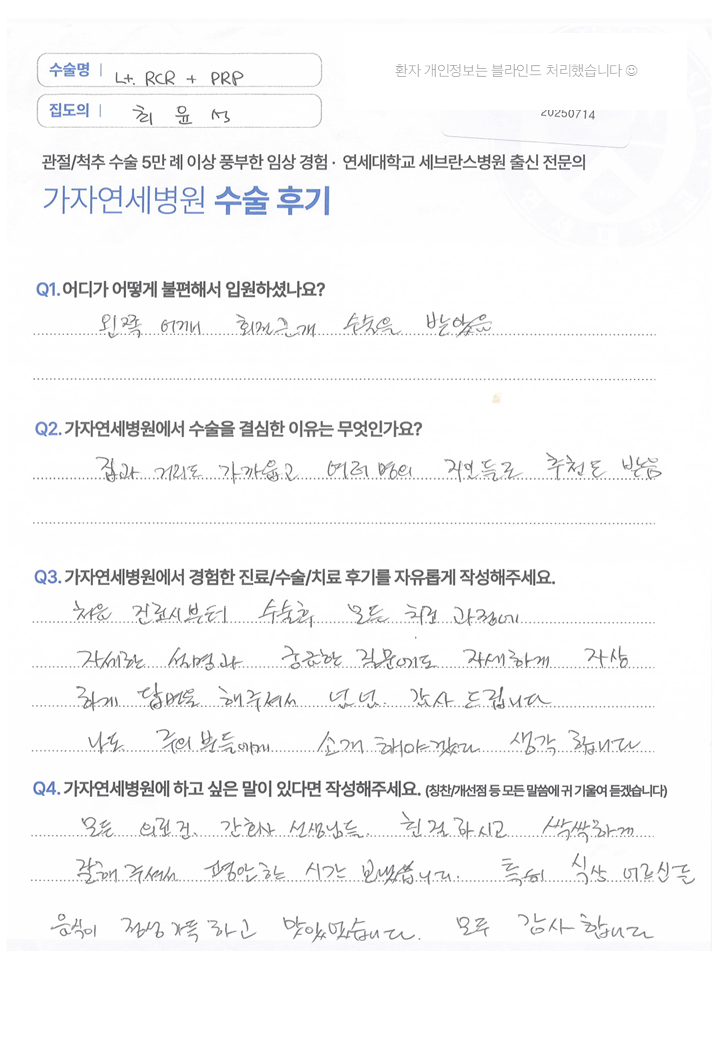 수술명 | Lt. RCR + PRP
환자 개인정보는 블라인드 처리했습니다 ☺
집도의 | 최윤성
20250714
관절/척추 수술 5만 례 이상 풍부한 임상 경험 · 연세대학교 세브란스병원 출신 전문의
가자연세병원 수술 후기
Q1. 어디가 어떻게 불편해서 입원하셨나요?
왼쪽 어깨 회전근개 수술을 받았음
Q2. 가자연세병원에서 수술을 결심한 이유는 무엇인가요?
집과 거리도 가까웁고 여러명의 지인들로 추천도 받음
Q3. 가자연세병원에서 경험한 진료/수술/치료 후기를 자유롭게 작성해주세요.
처음 진료시부터 수술후 모든 치료 과정에
자세한 설명과 궁금한 질문에도 자세하게 자상
하게 답변을 해주셔서 넘넘. 감사드립니다
나도 주의분들에게 소개해야겠다 생각 됩니다
Q4. 가자연세병원에 하고 싶은 말이 있다면 작성해주세요. (칭찬/개선점 등 모든 말씀에 귀 기울여 듣겠습니다)
모든 의료진. 간호사 선생님들. 친절하시고 싹싹하게
잘해주셔서 평안한 시간 보냈습니다. 특히 식사
음식이 정성 가득하고 맛있었습니다. 모두 감사합니다